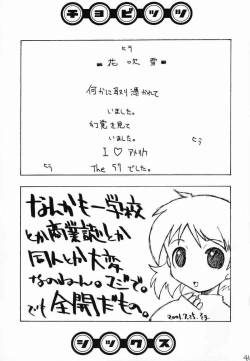 チョビッツ
ヒラ
花吹雪
何かに取り憑かれて
いました。
幻覚を見て
いました。
ヒラ
I ♡ アメリカ
ヒラ
The 57 でした。
なんかも一学校
とか商業誌とか
同人とか大変
なのねん。マジで。
でも全開だもへ。
シックス